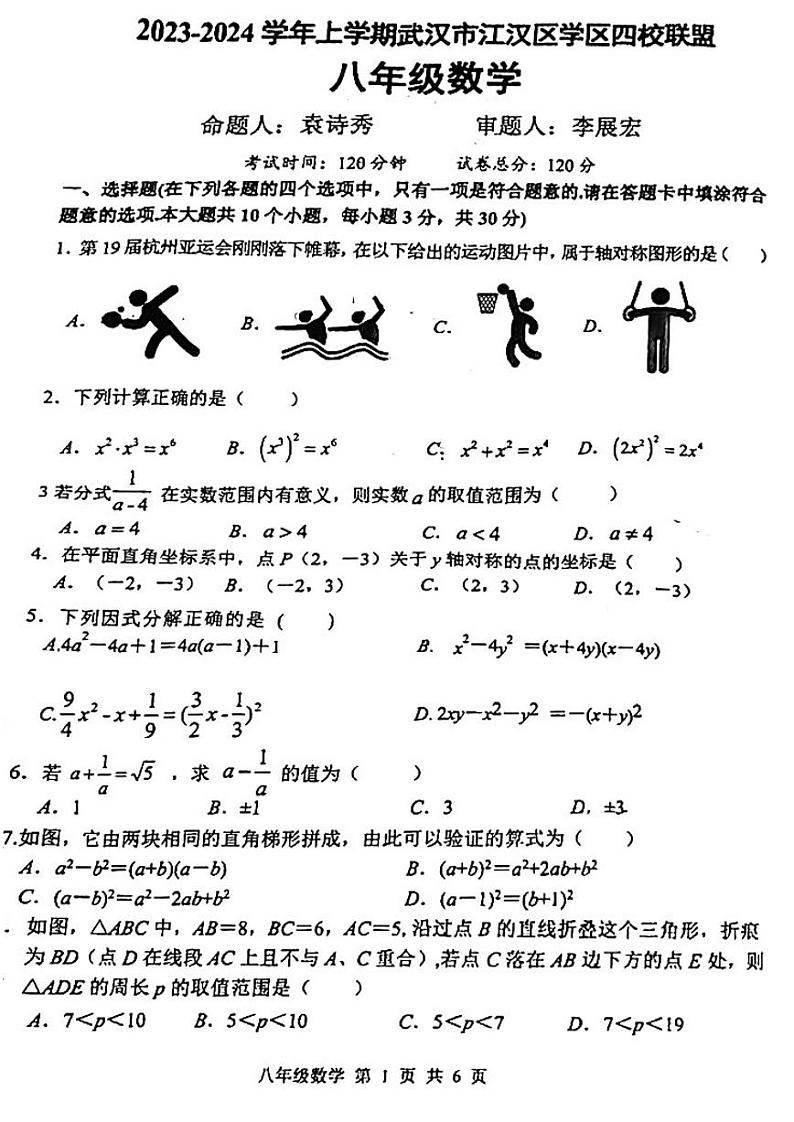 2023-2024 学年上学期武汉市江汉区学区四校联盟
八年级数学
命题人：袁诗秀 审题人：李展宏
考试时间：120 分钟 试卷总分：120 分
一、选择题(在下列各题的四个选项中，只有一项是符合题意的.请在答题卡中填涂符合
题意的选项.本大题共 10 个小题，每小题 3 分，共 30 分)
1. 第 19 届杭州亚运会刚刚落下帷幕，在以下给出的运动图片中，属于轴对称图形的是（ ）
A. B. C. D.
2. 下列计算正确的是（ ）
A. x²·x³=x⁶ B. (x³)²=x⁶ C. x²+x²=x⁴ D. (2x²)²=2x⁴
3 若分式 1/(a-4) 在实数范围内有意义，则实数 a 的取值范围为（ ）
A. a=4 B. a>4 C. a<4 D. a≠4
4. 在平面直角坐标系中，点 P（2，－3）关于 y 轴对称的点的坐标是（ ）
A. （－2，－3） B. （－2，3） C. （2，3） D. （2，－3）
5. 下列因式分解正确的是 （ ）
A.4a²－4a＋1＝4a(a－1)＋1 B. x²－4y² ＝(x＋4y)(x－4y)
C. 9/4 x²-x+1/9=(3/2 x-1/3)² D. 2xy－x2－y2 ＝－(x＋y)2
6. 若 a+1/a=√5 ，求 a-1/a 的值为（ ）
A. 1 B. ±1 C. 3 D. ±3
7.如图，它由两块相同的直角梯形拼成，由此可以验证的算式为（ ）
A. a²－b²＝(a+b)(a－b) B. (a+b)²＝a²+2ab+b²
C. (a－b)²＝a²－2ab+b² D. (a－1)²＝(b+1)²
. 如图，△ABC 中，AB=8，BC=6，AC=5，沿过点 B 的直线折叠这个三角形，折痕
为 BD（点 D 在线段 AC 上且不与 A、C 重合）,若点 C 落在 AB 边下方的点 E 处，则
△ADE 的周长 p 的取值范围是（ ）
A. 7<p<10 B. 5<p<10 C. 5<p<7 D. 7<p<19
八年级数学 第 1 页 共 6 页